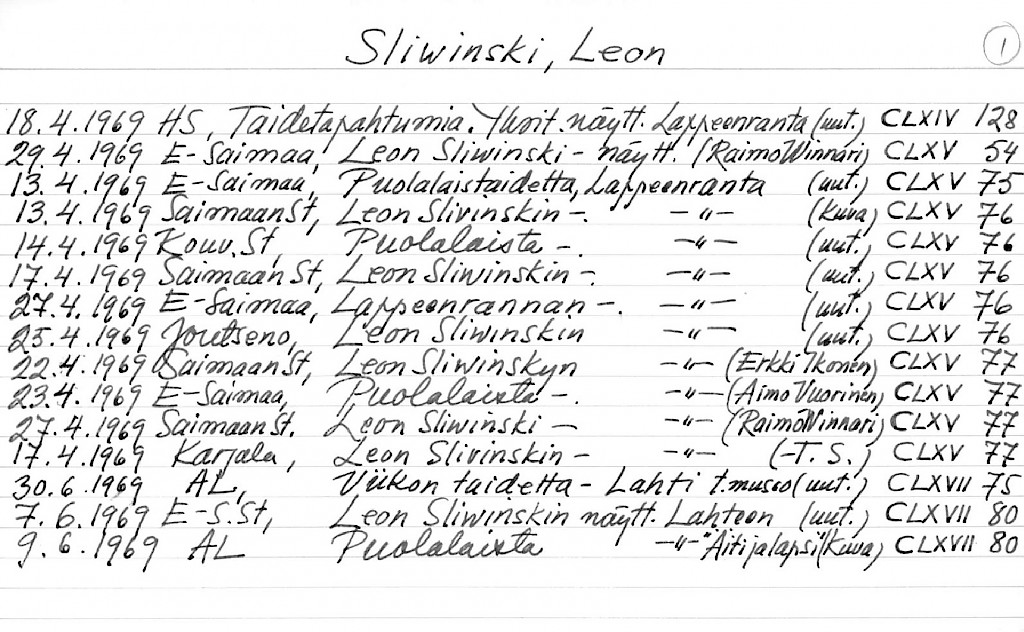 Sliwinski, Leon 1
18.4.1969 HS, Taidetapahtumia. Yksit. näytt. Lappeenranta (uut.) CLXIV 128
29.4.1969 E-Saimaa, Leon Sliwinski - näytt. (Raimo Winnari) CLXV 54
13.4.1969 E-Saimaa, Puolalaistaidetta, Lappeenranta (uut.) CLXV 75
13.4.1969 Saimaan St, Leon Slivinskin -. -"- (Kuva) CLXV 76
14.4.1969 Kouv. St, Puolalaista -. -"- (uut.) CLXV 76
17.4.1969 Saimaan St, Leon Sliwinskin -. -"- (uut.) CLXV 76
27.4.1969 E-Saimaa, Lappeenrannan -. -"- (uut.) CLXV 76
25.4.1969 Joutseno, Leon Sliwinskin -"- (uut.) CLXV 76
22.4.1969 Saimaan St, Leon Sliwinskyn -"- (Erkki Ikonen) CLXV 77
23.4.1969 E-Saimaa, Puolalaista -. -"- (Aimo Vuorinen) CLXV 77
27.4.1969 Saimaan St. Leon Sliwinski - -"- (Raimo Winnari) CLXV 77
17.4.1969 Karjala, Leon Slivinskin - -"- (-T. S.) CLXV 77
30.6.1969 AL, Viikon taidetta - Lahti t.museo (uut.) CLXVII 75
7.6.1969 E-S.St, Leon Sliwinskin näytt. Lahteen (uut.) CLXVII 80
9.6.1969 AL Puolalaista -"- "Äiti ja lapsi" (Kuva) CLXVII 80